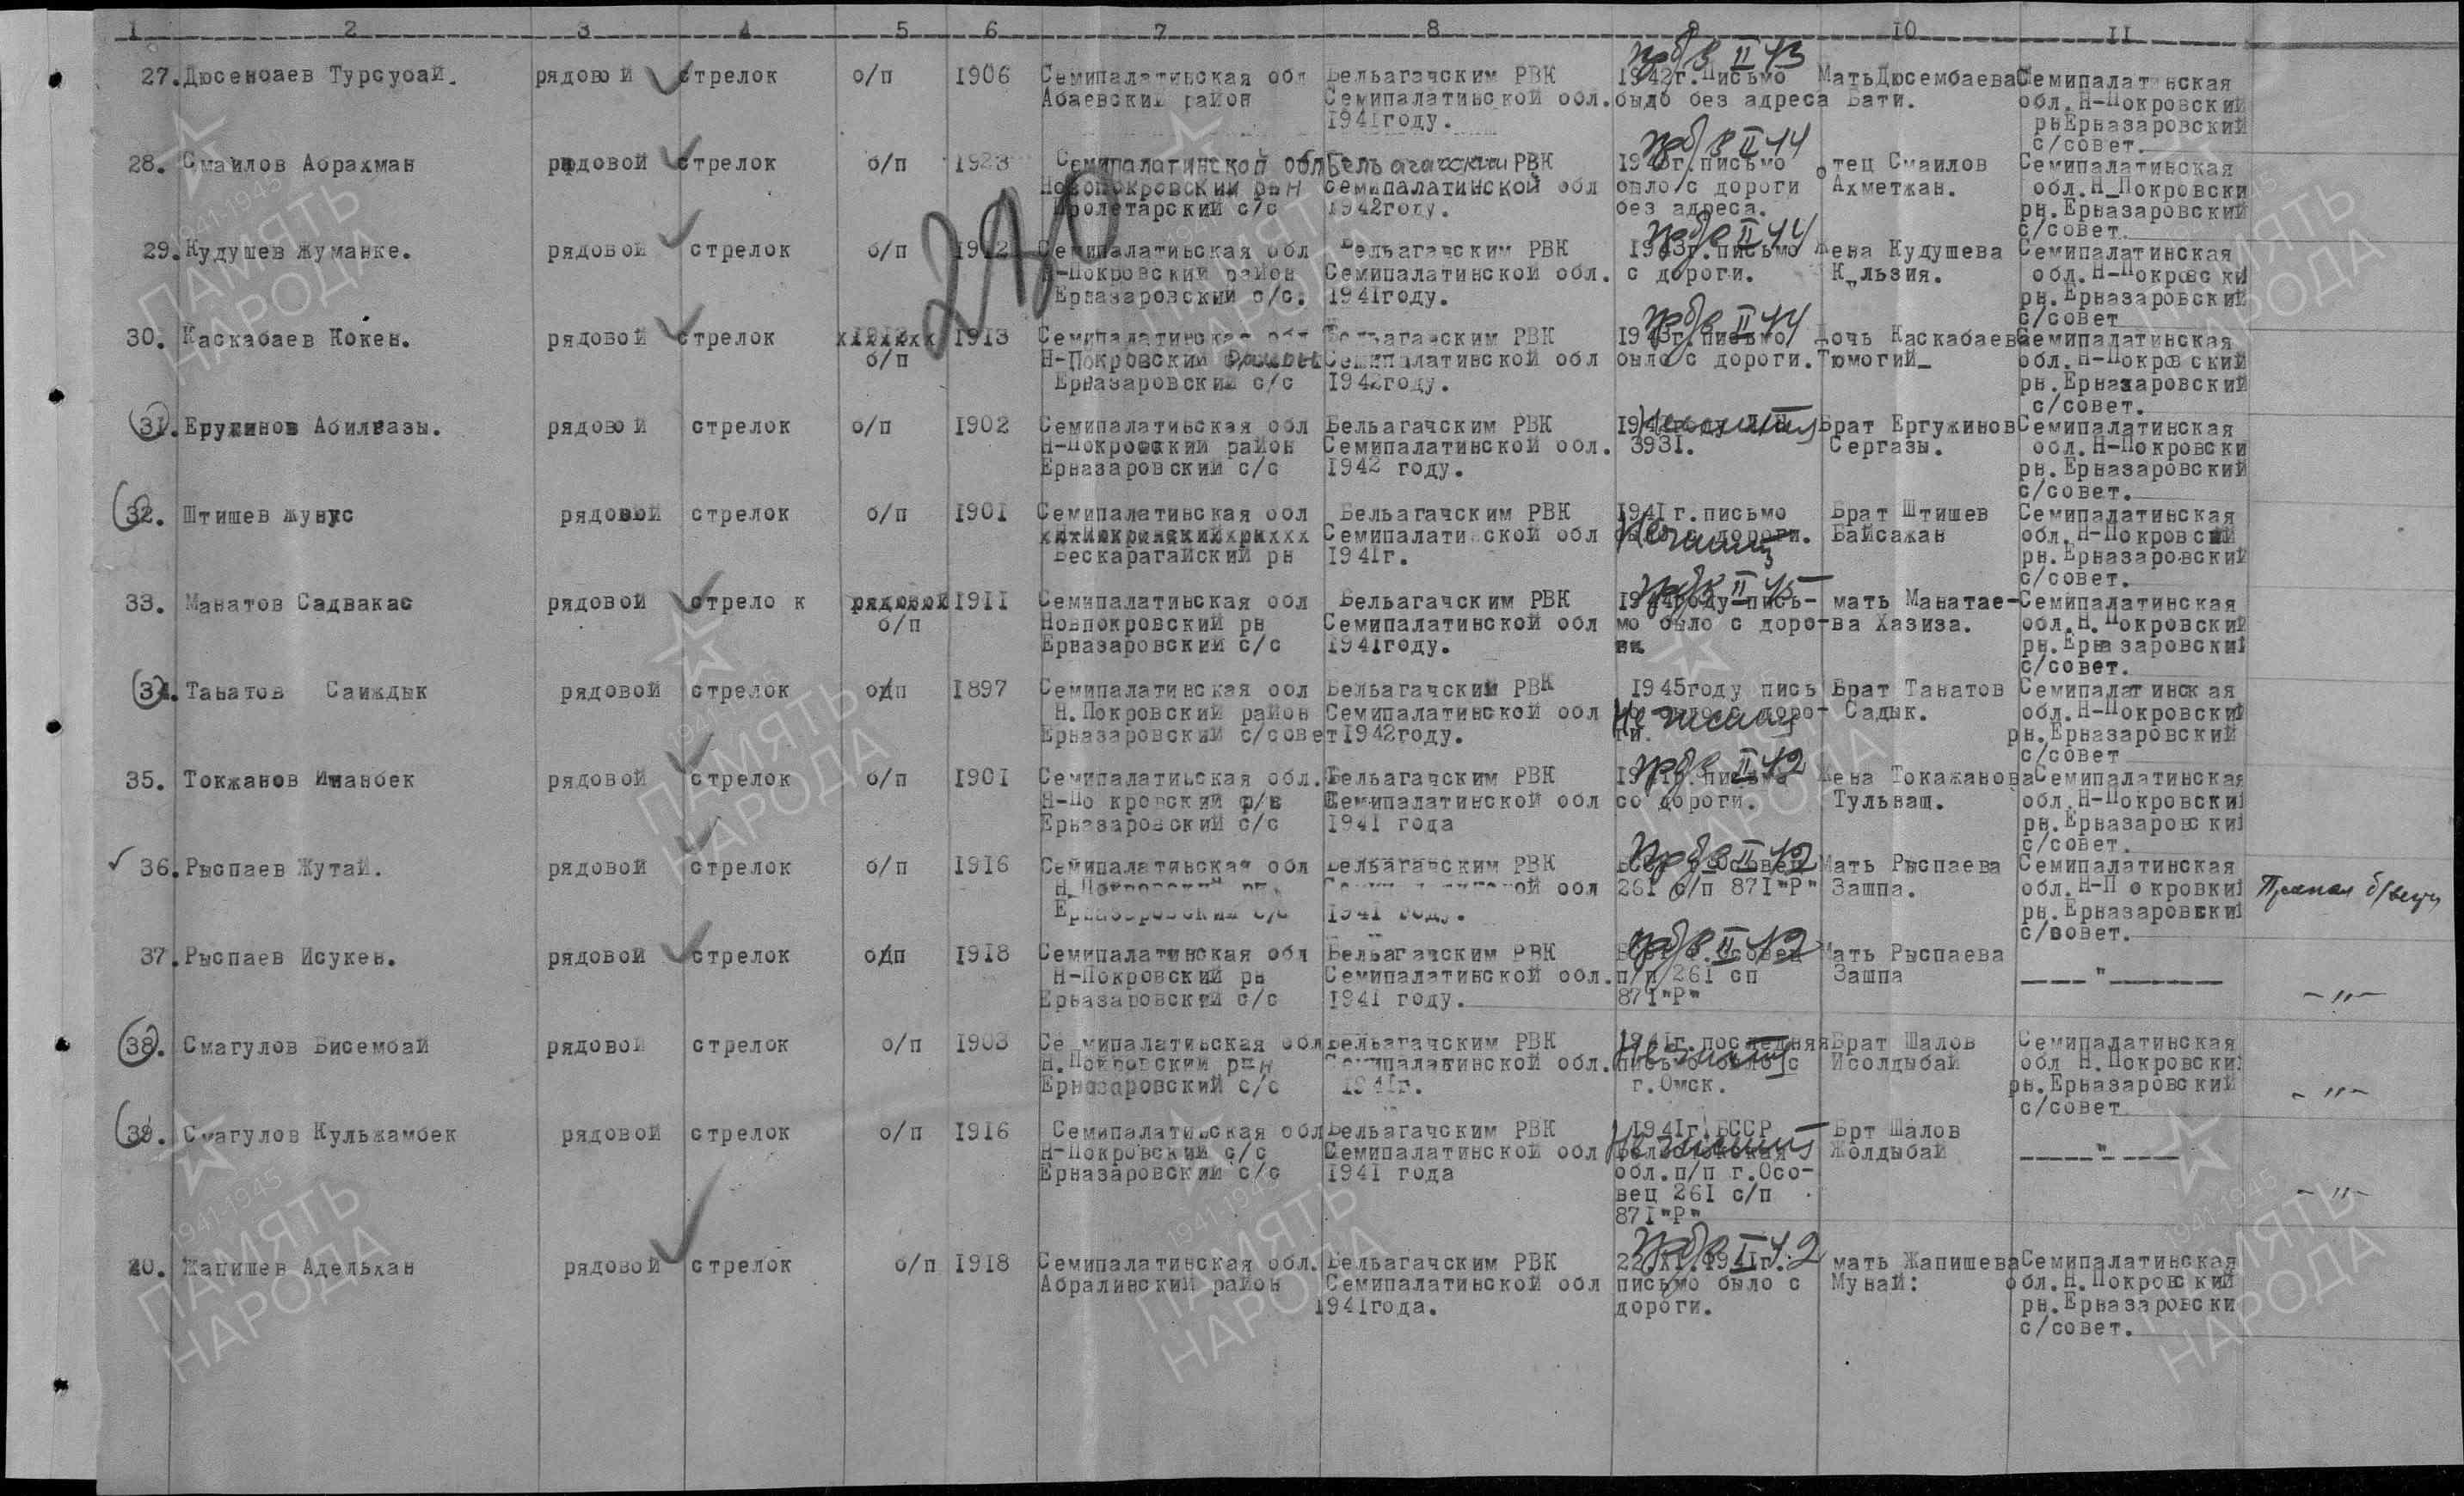 1 2 3 4 5 6 7 8 9 10 11
27. Дюсенбаев Турсубай. рядовой стрелок о/п 1906 Семипалатинская обл Бельагачским РВК 1942г. Письмо Мать Дюсембаева Семипалатинская
Абаевский район Семипалатинской обл. было без адреса Бати. обл. Н-Покровский
1941году. рн Ерназаровский
с/совет.
28. Смаилов Абрахман рядовой стрелок б/п 1923 Семипалатинской обл Бельагачским РВК письмо отец Смаилов Семипалатинская
Новопокровский рн Семипалатинской обл было с дороги Ахметжан. обл. Н-Покровски
Пролетарский с/с 1942году. без адреса. рн. Ерназаровский
с/совет.
29. Кудушев Жуманке. рядовой стрелок б/п 1912 Семипалатинская обл Бельагачским РВК 1943г. письмо Жена Кудушева Семипалатинская
Н-Покровский район Семипалатинской обл. с дороги. Кульзия. обл. Н-Покровски
Ерназаровский с/с. 1941году. рн. Ерназаровский
с/совет
30. Каскабаев Кокен. рядовой стрелок 1913 Семипалатинская обл Бельагачским РВК 1943г. письмо Дочь Каскабаева Семипалатинская
б/п Н-Покровский район Семипалатинской обл было с дороги. Тюмогий обл. Н-Покровский
Ерназаровский с/с 1942году. рн. Ерназаровский
с/совет.
31. Еружинов Абилвазы. рядовой стрелок б/п 1902 Семипалатинская обл Бельагачским РВК Брат Ергужинов Семипалатинская
Н-Покровский район Семипалатинской обл. 3931. Сергазы. обл. Н-Покровски
Ерназаровский с/с 1942 году. рн. Ерназаровский
с/совет.
32. Штишев Жунус рядовой стрелок б/п 1901 Семипалатинская обл Бельагачским РВК 1941г. письмо Брат Штишев Семипалатинская
Семипалатинской обл было с дороги. Байсажан обл. Н-Покровский
Бескарагайский рн 1941г. рн. Ерназаровский
с/совет.
33. Манатов Садвакас рядовой стрело к рядовой 1911 Семипалатинская обл Бельагачским РВК 1944году пись- мать Манатае- Семипалатинская
б/п Новпокровский рн Семипалатинской обл мо было с доро- ва Хазиза. обл. Н. Покровский
Ерназаровский с/с 1941году. ги рн. Ерназаровский
с/совет.
34. Танатов Саиждык рядовой стрелок б/п 1897 Семипалатинская обл Бельагачский РВК 1945году пись Брат Танатов Семипалатинская
Н. Покровский район Семипалатинской обл мо было с доро- Садык. обл. Н-Покровский
Ерназаровский с/совет 1942году. ги. рн. Ерназаровский
с/совет
35. Токжанов Иманбек рядовой стрелок б/п 1901 Семипалатинская обл. Бельагачским РВК 1941г. письмо Жена Токажанова Семипалатинская
Н-По кровский р/н Семипалатинской обл со дороги. Тульваш. обл. Н-Покровский
Ерназаровский с/с 1941 года рн. Ерназаровский
с/совет.
36. Рыспаев Жутай. рядовой стрелок б/п 1916 Семипалатинская обл Бельагачским РВК Мать Рыспаева Семипалатинская
Н. Покровский рн. Семипалатинской обл 261 с/п 871"Р" Зашпа. обл. Н-П окровкий Пропал б/вести
Ерназаровский с/с 1941 году. рн. Ерназаровский
с/совет.
37. Рыспаев Исукен. рядовой стрелок б/п 1918 Семипалатинская обл Бельагачским РВК Мать Рыспаева
Н-Покровский рн Семипалатинской обл. п/п 261 сп Зашпа "
Ерназаровский с/с 1941 году. 871"Р" -"-
38. Смагулов Бисембай рядовой стрелок б/п 1903 Се мипалатинская обл Бельагачским РВК 1941г. последняя Брат Шалов Семипалатинская
Н. Покровский рн Семипалатинской обл. письмо было с Исолдыбай обл Н. Покровский
Ерназаровский с/с 1941г. г.Омск. рн. Ерназаровский
с/совет -"-
39. Смагулов Кульжамбек рядовой стрелок б/п 1916 Семипалатинская обл Бельагачским РВК 1941г. БССР Брт Шалов
Н-Покровский с/с Семипалатинской обл Белостокская Жолдыбай "
Ерназаровский с/с 1941 года обл.п/п г.Осо-
вец 261 с/п -"-
871"Р"
40. Жапишев Адельхан рядовой стрелок б/п 1918 Семипалатинская обл. Бельагачским РВК 22.XI.1941г. мать Жапишева Семипалатинская
Абралинский район Семипалатинской обл письмо было с Мунай: обл. Н. Покровский
1941года. дороги. рн. Ерназаровски
с/совет.
240
1941-1945
ПАМЯТЬ
НАРОДА